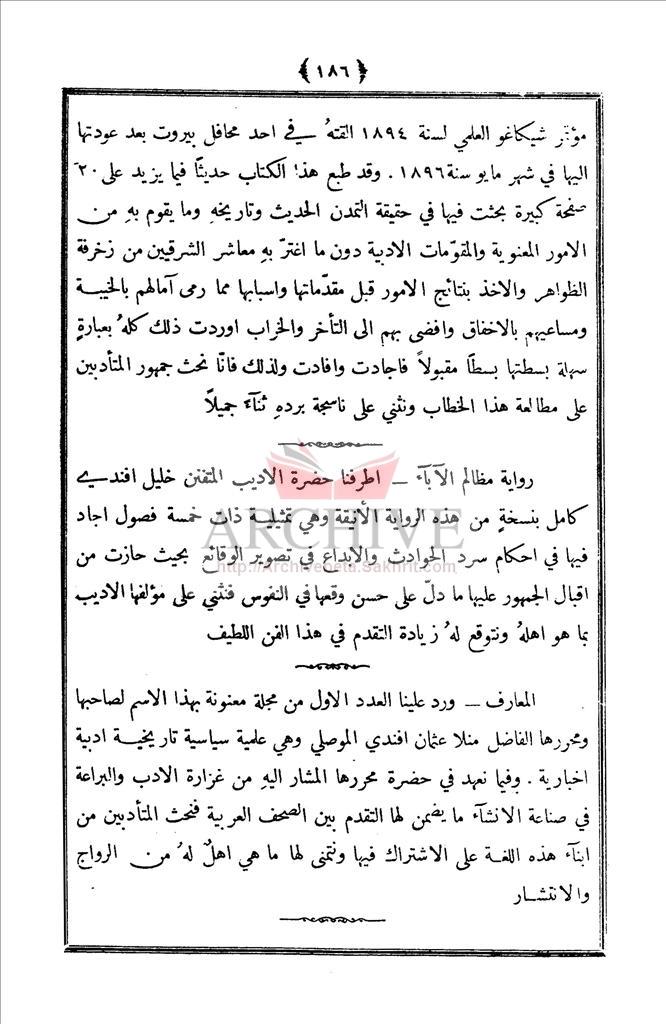 ﴿ ١٨٦ ﴾
مؤتمر شيكاغو العلمي لسنة ١٨٩٤ القتهُ في احد محافل بيروت بعد عودتها
اليها في شهر مايو سنة ١٨٩٦ . وقد طبع هذا الكتاب حديثًا فيما يزيد على ٢٠
صفحة كبيرة بحثت فيها في حقيقة التمدن الحديث وتاريخهِ وما يقوم بهِ من
الامور المعنوية والمقوّمات الادبية دون ما اغترّ بهِ معاشر الشرقيين من زخرفة
الظواهر والاخذ بنتائج الامور قبل مقدّماتها واسبابها مما رمى آمالهم بالخيبة
ومساعيهم بالاخفاق وافضى بهم الى التأخر والخراب اوردت ذلك كلهُ بعبارةٍ
سهلة بسطتها بسطًا مقبولاً فاجادت وافادت ولذلك فانّا نحث جمهور المتأدبين
على مطالعة هذا الخطاب ونثني على ناسجة بردهِ ثنآءً جميلاً
رواية مظالم الآبآء ـ اطرفنا حضرة الاديب المتفنن خليل افندي
كامل بنسخةٍ من هذه الرواية الأنيقة وهي تمثيلية ذات خمسة فصول اجاد
فيها في احكام سرد الحوادث والابداع في تصوير الوقائع بحيث حازت من
اقبال الجمهور عليها ما دلّ على حسن وقعها في النفوس فنثني على مؤلفها الاديب
بما هو اهلهُ ونتوقع لهُ زيادة التقدم في هذا الفن اللطيف
المعارف ـ ورد علينا العدد الاول من مجلة معنونة بهذا الاسم لصاحبها
ومحررها الفاضل منلا عثمان افندي الموصلي وهي علمية سياسية تاريخية ادبية
اخبارية . وفيما نعهد في حضرة محررها المشار اليهِ من غزارة الادب والبراعة
في صناعة الانشآء ما يضمن لها التقدم بين الصحف العربية فنحث المتأدبين من
ابنآء هذه اللغة على الاشتراك فيها ونتمنى لها ما هي اهلٌ لهُ من الرواج
والانتشار
ARCHIVE
http://Archivebeta.Sakhrit.com